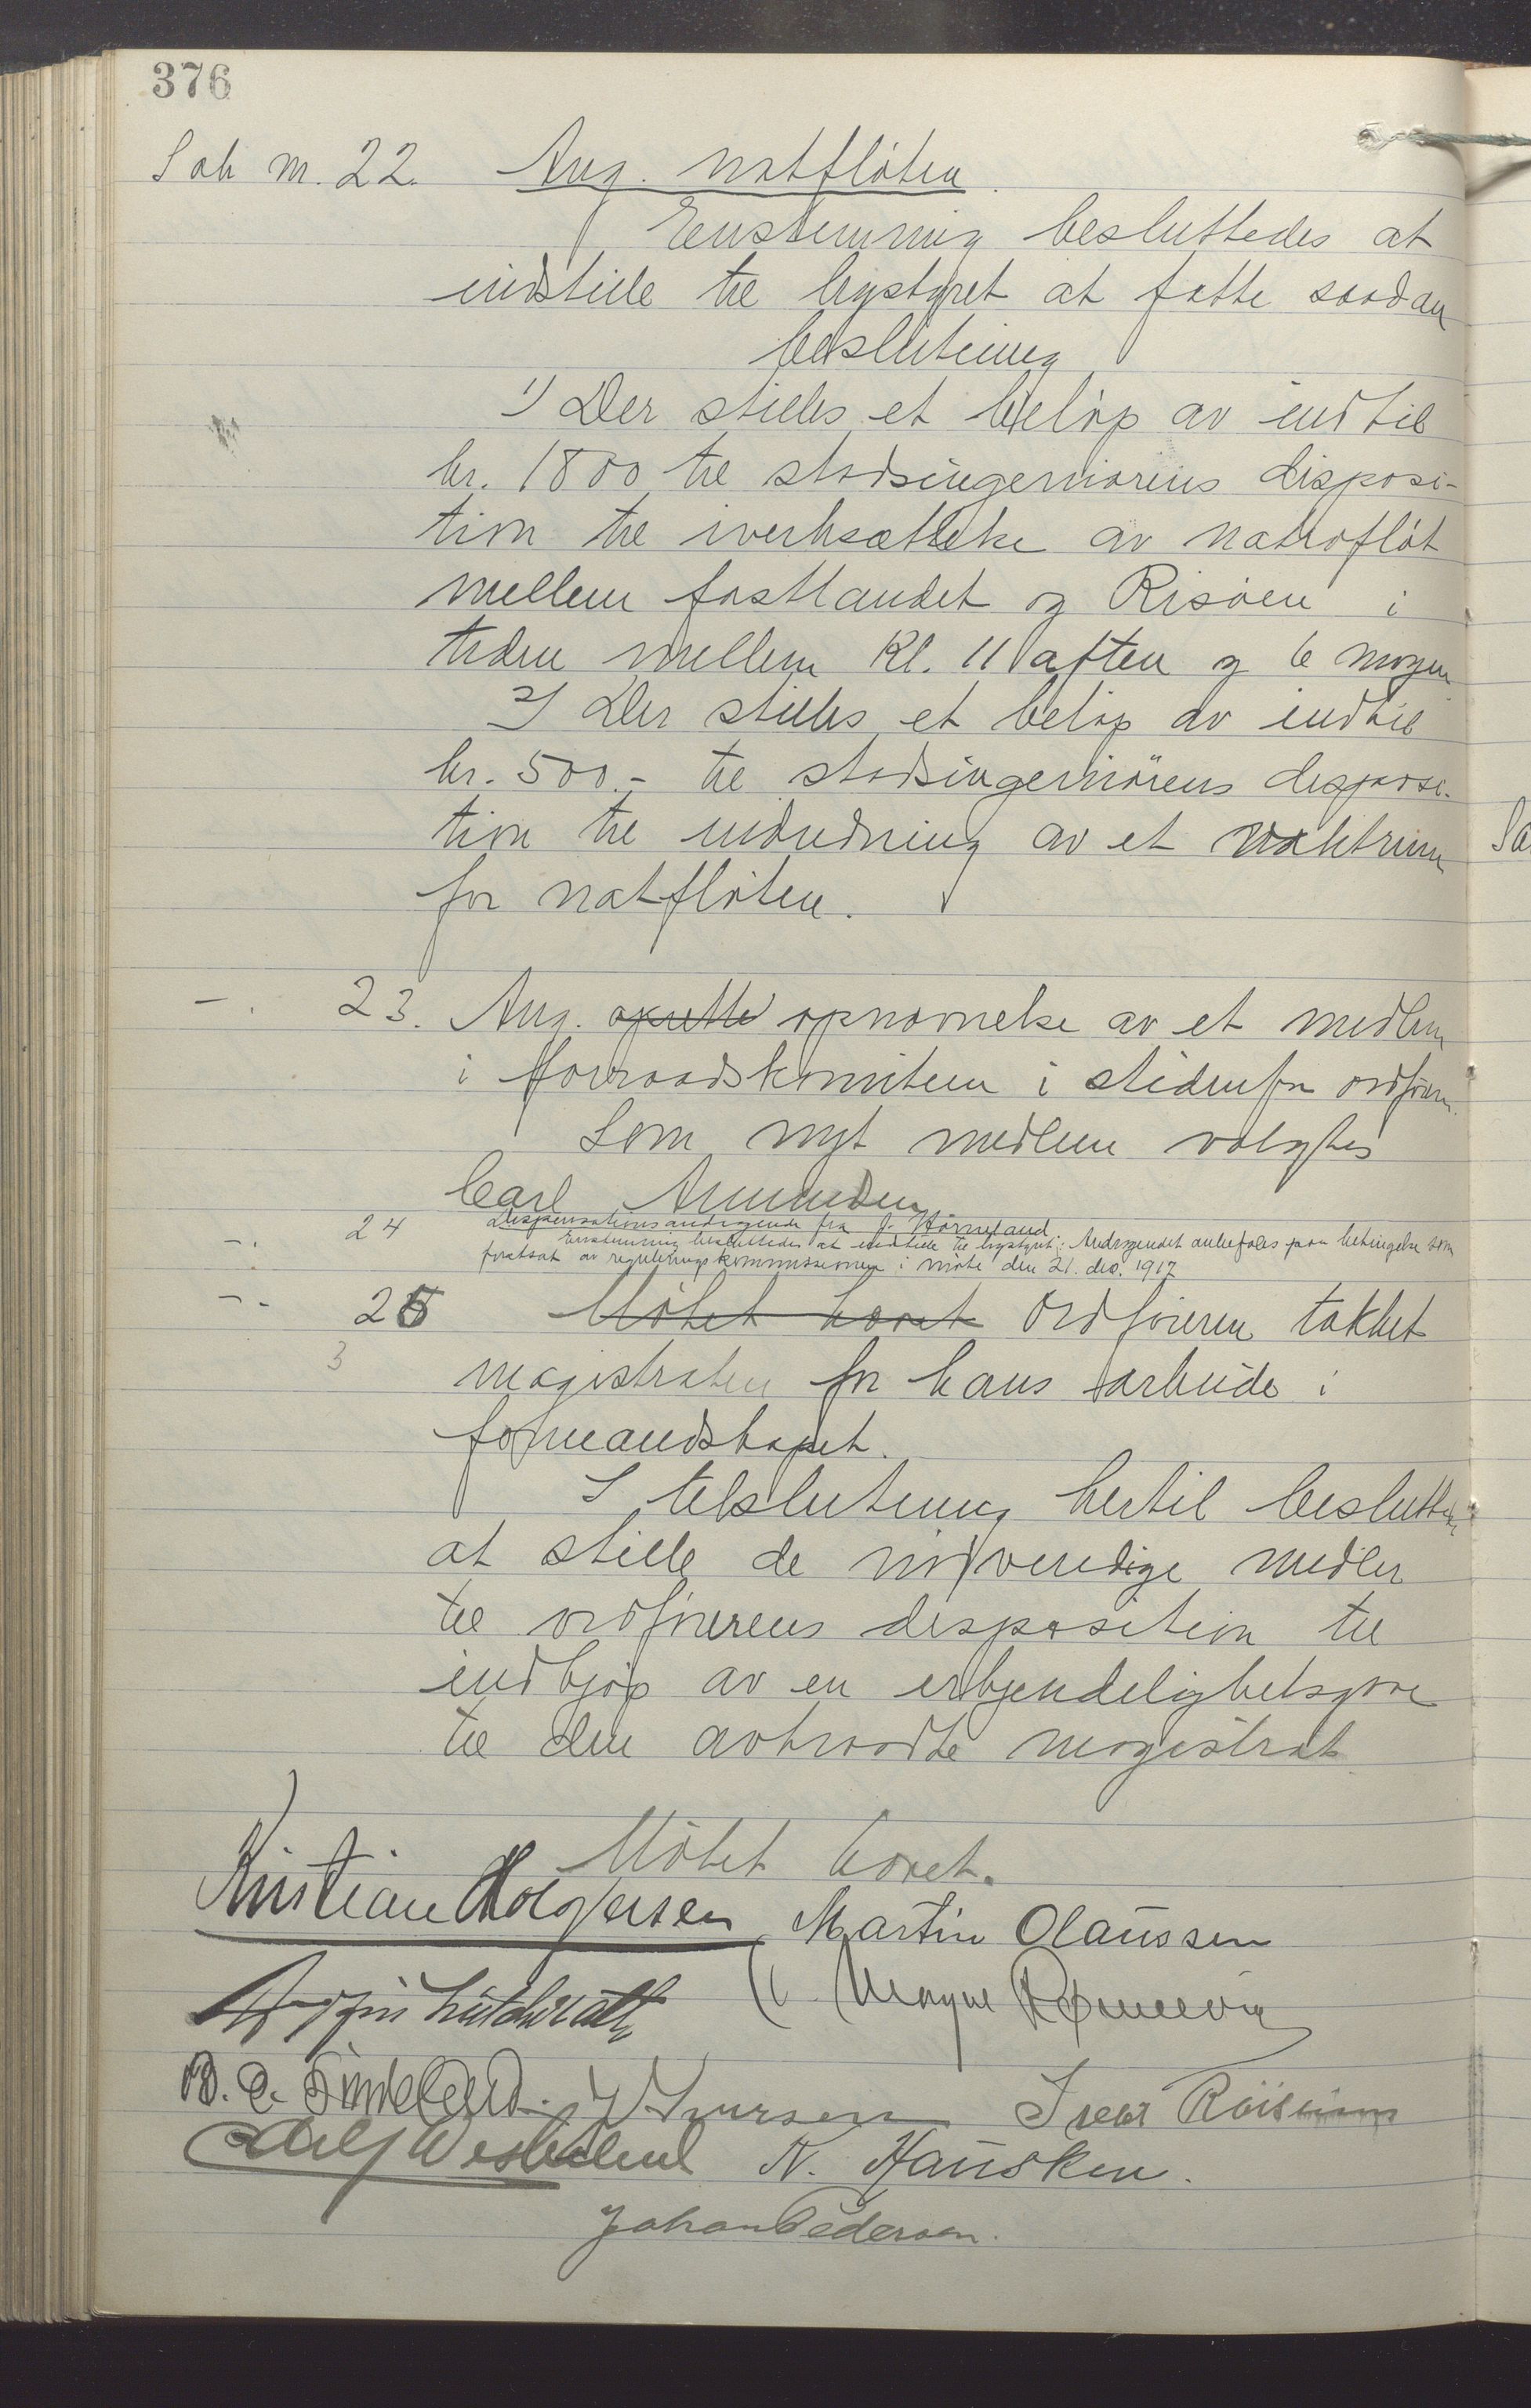 376
Sak nr. 22. Ang. natfløten.
Enstemmig besluttedes at
indstille til bystyret at fatte saadan
beslutning
1) Der stilles et beløp av indtil
kr. 1800 til stadsingeniørens disposi-
tion til iverksættelse av natrofløt
mellem fastlandet og Risøen i
tiden mellem Kl. 11 aften og 6 morgen
2) Der stilles et beløp av indtil
kr. 500.- til stadsingeniørens disposi-
tion til indredning av et vaktrum
for natfløten.
-. 23. Ang. oprette opnævnelse av et medlem
i forraadskomiteen i stedenfor ordfører.
Som nyt medlem valgtes
Carl Amundsen
-. 24 Dispensationsandragende fra J. Hörneland
Enstemmig besluttedes at indstille til bystyret: Andragendet anbefales paa betingelse som
foreslaat av reguleringskommissionen i møte den 21. des. 1917
-. 25 Møtet hævet Ordføreren takket
3
magistraten for hans arbeide i
formandskapet.
I tilslutning hertil besluttedes
at stille de nødvendige midler
til ordførerens disposition til
indkjøp av en erkjendelighetsgave
til den avtraadte magistrat
Møtet hævet.
Kristian Holgersen Martin Olaussen
Magne Rømmevig
J. Iversen Ivar
Alf N. Hausken.
Johan Pedersen.
Sa